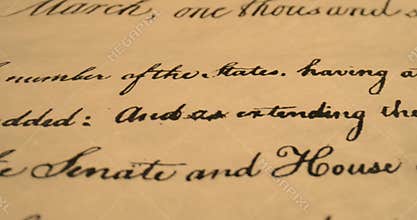 March, one thousand
number of the States. having a
dded: And as extending the
Senate and House